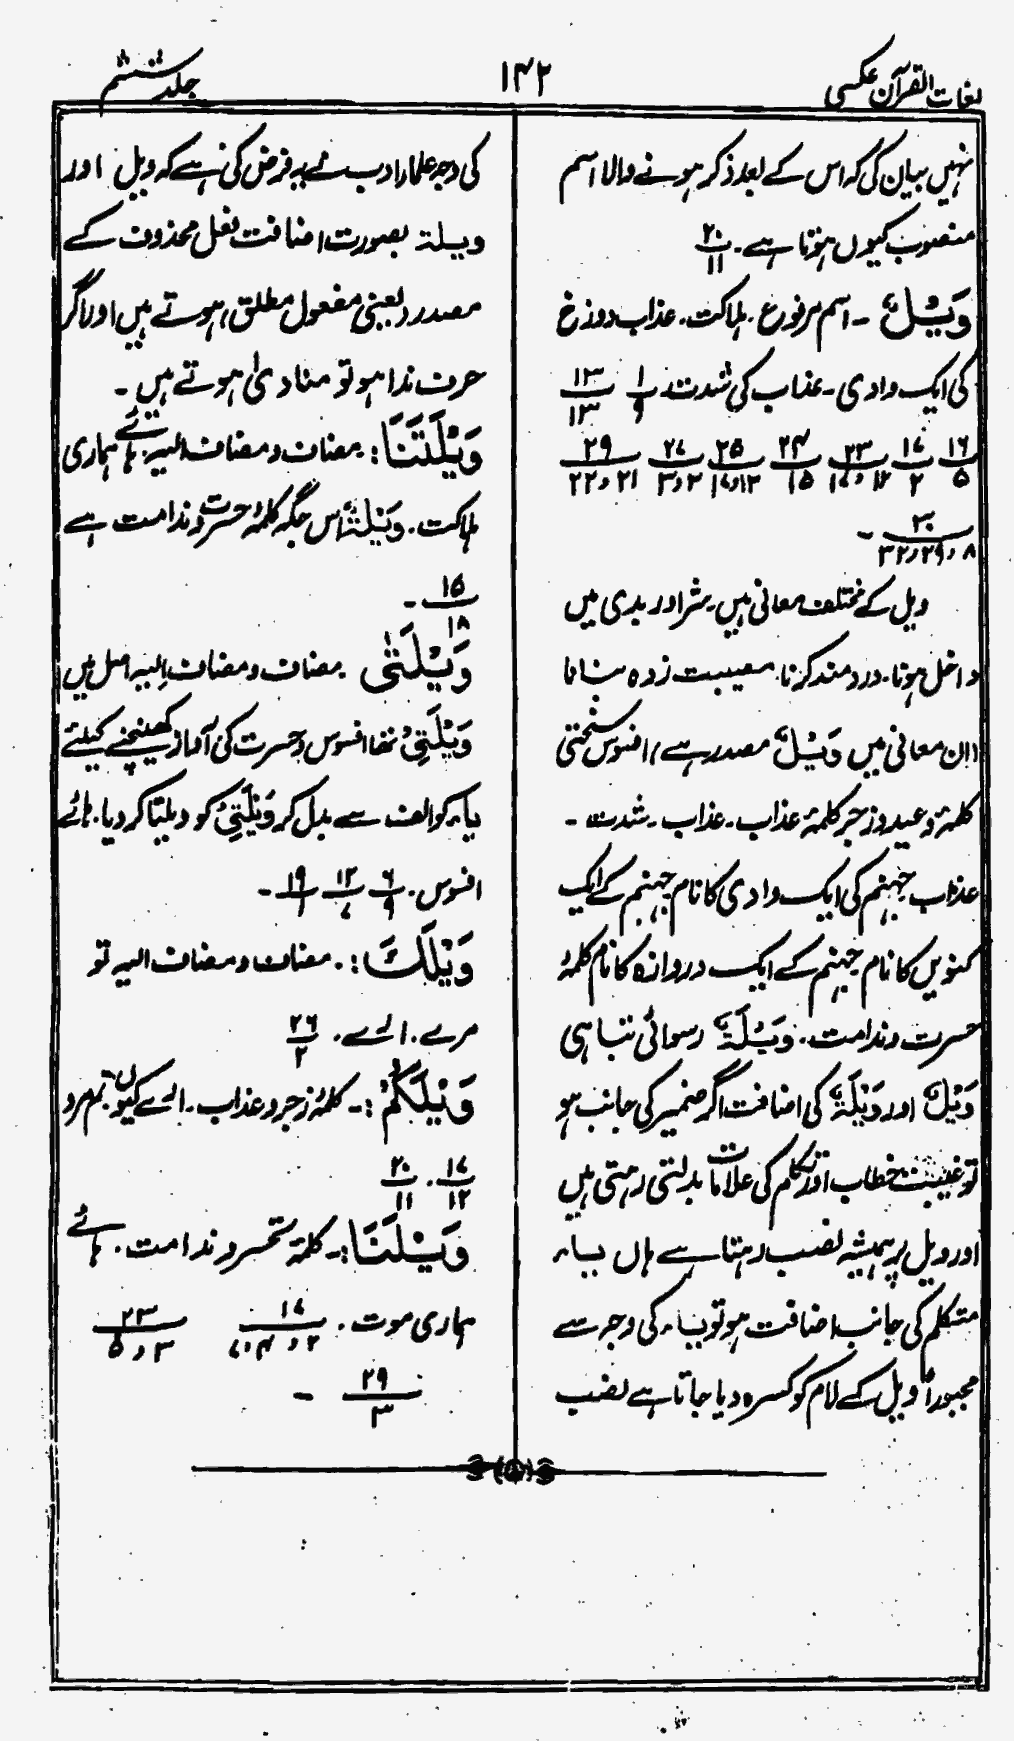 لغات القرآن عکسی
۱۴۲
جلد ششم
نہیں بیان کی کہ اس کے بعد ذکر ہونے والا اسم
منصوب کیوں ہوتا ہے۔ ۲۰/۱۱
وَیْلٌ ۔ اسم مرفوع۔ ہلاکت۔ عذاب دوزخ
کی ایک وادی۔ عذاب کی شدت۔ ۱/۹ ۱۳/۱۳
۱۶/۵ ۱۷/۲ ۲۳/۱۲ و ۱۷ ۲۴/۱۵ ۲۵/۱۲ و ۱۷ ۲۷/۲ و ۳ ۲۹/۲۱ و ۲۲
۳۰/۸ و ۲۹ و ۳۲ ۔
ویل کے مختلف معانی ہیں۔ شر اور بدی میں
داخل ہونا۔ درد مند کرنا۔ مصیبت زدہ بنانا
ان معانی میں وَیْلٌ مصدر ہے افسوس سختی
کلمۂ وعید و زجر کلمۂ عذاب۔ عذاب۔ شدت ۔
عذاب جہنم کی ایک وادی کا نام جہنم کے ایک
کنویں کا نام جہنم کے ایک دروازہ کا نام کلمۂ
حسرت و ندامت۔ وَیْلَۃٌ رسوائی تباہی
وَیْلٌ اور وَیْلَۃٌ کی اضافت اگر ضمیر کی جانب ہو
تو غیبت خطاب اور تکلم کی علامات بدلتی رہتی ہیں
اور ویل پر ہمیشہ نصب رہتا ہے ہاں یاء
متکلم کی جانب اضافت ہو تو یاء کی وجہ سے
مجبوراً ویل کے لام کو کسرہ دیا جاتا ہے نصب
کی وجہ علماء ادب نے یہ فرض کی ہے کہ ویل اور
ویلۃ بصورت اضافت فعل محذوف کے
مصدر یعنی مفعول مطلق ہوتے ہیں اور اگر
حرف ندا ہو تو منادیٰ ہوتے ہیں ۔
وَیْلَتَنَا: مضاف و مضاف الیہ۔ ہائے ہماری
ہلاکت۔ وَیْلَۃٌ اس جگہ کلمۂ حسرت و ندامت ہے
۱۵/۱۸ ۔
وَیْلَتٰی مضاف و مضاف الیہ اصل میں
وَیْلَتِیْ تھا افسوس و حسرت کی آواز کھینچنے کیلئے
یاء کو الف سے بدل کر وَیْلَتِیْ کو ویلتا کر دیا۔ ہائے
افسوس۔ ۶/۹ ۱۲/۷ ۱۹/۱ ۔
وَیْلَكَ :۔ مضاف و مضاف الیہ تو
مرے۔ ارے۔ ۲۶/۲
وَیْلَکُمْ :۔ کلمۂ زجر و عذاب۔ ارے کیوں۔ تم مرو
۱۷/۱۲ ۔ ۲۰/۱۱
وَیْلَنَا :۔ کلمۂ تحسر و ندامت۔ ہائے
ہماری موت۔ ۱۷/۲ و ۴ و ۷ ۲۳/۳ و ۵
۲۹/۳ ۔